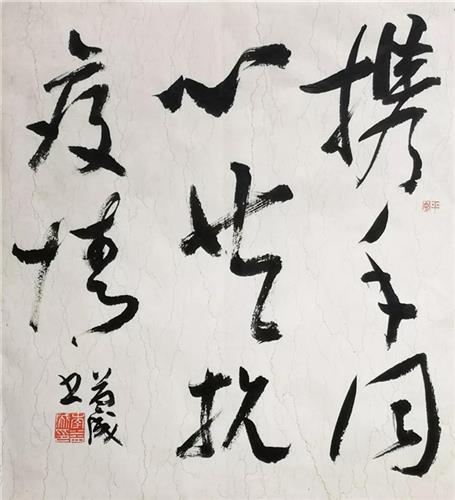 携手同
心共抗
疫情
益成
书